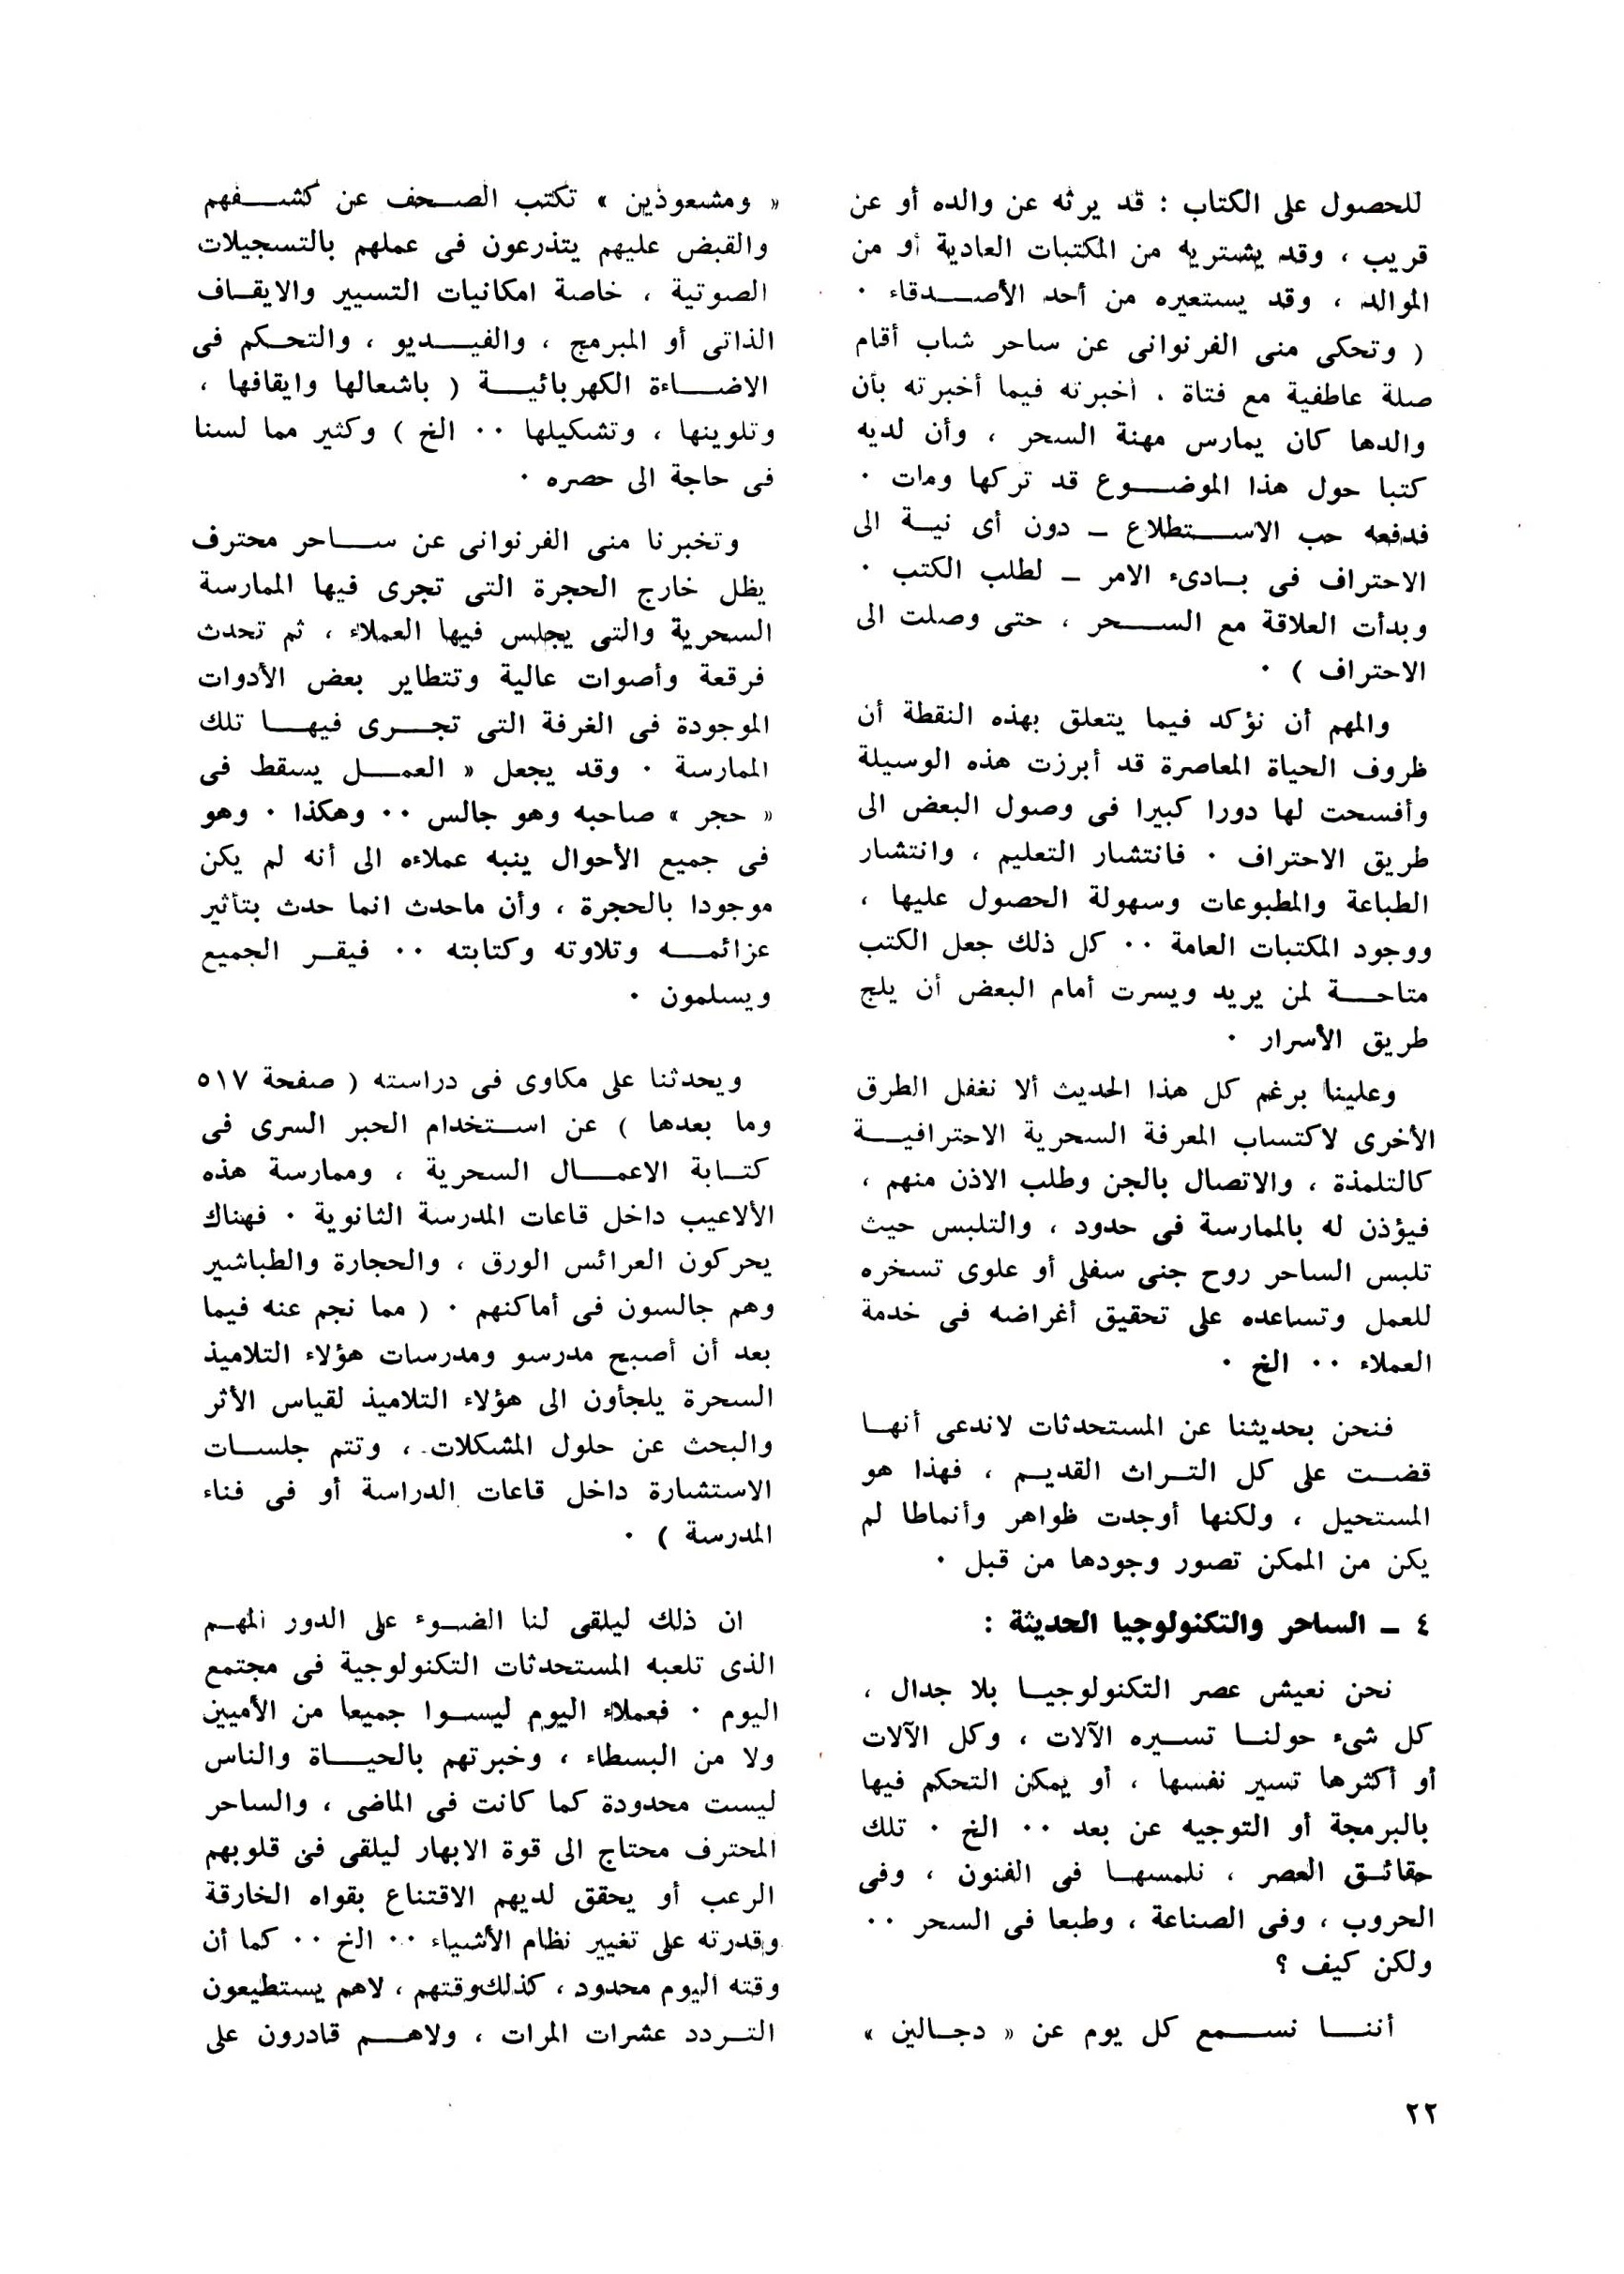 للحصول على الكتاب : قد يرثه عن والده أو عن
قريب ، وقد يشتريه من المكتبات العادية أو من
الموالد ، وقد يستعيره من أحد الأصدقاء ٠
( وتحكى منى الفرنوانى عن ساحر شاب أقام
صلة عاطفية مع فتاة ، أخبرته فيما أخبرته بأن
والدها كان يمارس مهنة السحر ، وأن لديه
كتبا حول هذا الموضوع قد تركها ومات ٠
فدفعه حب الاستطلاع ـ دون أى نية الى
الاحتراف فى بادىء الامر ـ لطلب الكتب ٠
وبدأت العلاقة مع السحر ، حتى وصلت الى
الاحتراف ) ٠
والمهم أن نؤكد فيما يتعلق بهذه النقطة أن
ظروف الحياة المعاصرة قد أبرزت هذه الوسيلة
وأفسحت لها دورا كبيرا فى وصول البعض الى
طريق الاحتراف ٠ فانتشار التعليم ، وانتشار
الطباعة والمطبوعات وسهولة الحصول عليها ،
ووجود المكتبات العامة ٠٠ كل ذلك جعل الكتب
متاحة لمن يريد ويسرت أمام البعض أن يلج
طريق الأسرار ٠
وعلينا برغم كل هذا الحديث ألا نغفل الطرق
الأخرى لاكتساب المعرفة السحرية الاحترافية
كالتلمذة ، والاتصال بالجن وطلب الاذن منهم ،
فيؤذن له بالممارسة فى حدود ، والتلبس حيث
تلبس الساحر روح جنى سفلى أو علوى تسخره
للعمل وتساعده على تحقيق أغراضه فى خدمة
العملاء ٠٠ الخ ٠
فنحن بحديثنا عن المستحدثات لاندعى أنها
قضت على كل التراث القديم ، فهذا هو
المستحيل ، ولكنها أوجدت ظواهر وأنماطا لم
يكن من الممكن تصور وجودها من قبل ٠
٤ ـ الساحر والتكنولوجيا الحديثة :
نحن نعيش عصر التكنولوجيا بلا جدال ،
كل شىء حولنا تسيره الآلات ، وكل الآلات
أو أكثرها تسير نفسها ، أو يمكن التحكم فيها
بالبرمجة أو التوجيه عن بعد ٠٠ الخ ٠ تلك
حقائق العصر ، نلمسها فى الفنون ، وفى
الحروب ، وفى الصناعة ، وطبعا فى السحر ٠٠
ولكن كيف ؟
أننا نسمع كل يوم عن « دجالين »
« ومشعوذين » تكتب الصحف عن كشفهم
والقبض عليهم يتذرعون فى عملهم بالتسجيلات
الصوتية ، خاصة امكانيات التسيير والايقاف
الذاتى أو المبرمج ، والفيديو ، والتحكم فى
الاضاءة الكهربائية ( باشعالها وايقافها ،
وتلوينها ، وتشكيلها ٠٠ الخ ) وكثير مما لسنا
فى حاجة الى حصره ٠
وتخبرنا منى الفرنوانى عن ساحر محترف
يظل خارج الحجرة التى تجرى فيها الممارسة
السحرية والتى يجلس فيها العملاء ، ثم تحدث
فرقعة وأصوات عالية وتتطاير بعض الأدوات
الموجودة فى الغرفة التى تجرى فيها تلك
الممارسة ٠ وقد يجعل « العمل يسقط فى
« حجر » صاحبه وهو جالس ٠٠ وهكذا ٠ وهو
فى جميع الأحوال ينبه عملاءه الى أنه لم يكن
موجودا بالحجرة ، وأن ماحدث انما حدث بتأثير
عزائمه وتلاوته وكتابته ٠٠ فيقر الجميع
ويسلمون ٠
ويحدثنا على مكاوى فى دراسته ( صفحة ٥١٧
وما بعدها ) عن استخدام الحبر السرى فى
كتابة الاعمال السحرية ، وممارسة هذه
الألاعيب داخل قاعات المدرسة الثانوية ٠ فهناك
يحركون العرائس الورق ، والحجارة والطباشير
وهم جالسون فى أماكنهم ٠ ( مما نجم عنه فيما
بعد أن أصبح مدرسو ومدرسات هؤلاء التلاميذ
السحرة يلجأون الى هؤلاء التلاميذ لقياس الأثر
والبحث عن حلول المشكلات ، وتتم جلسات
الاستشارة داخل قاعات الدراسة أو فى فناء
المدرسة ) ٠
ان ذلك ليلقى لنا الضوء على الدور المهم
الذى تلعبه المستحدثات التكنولوجية فى مجتمع
اليوم ٠ فعملاء اليوم ليسوا جميعا من الأميين
ولا من البسطاء ، وخبرتهم بالحياة والناس
ليست محدودة كما كانت فى الماضى ، والساحر
المحترف محتاج الى قوة الابهار ليلقى فى قلوبهم
الرعب أو يحقق لديهم الاقتناع بقواه الخارقة
وقدرته على تغيير نظام الأشياء ٠٠ الخ ٠٠ كما أن
وقته اليوم محدود ، كذلك وقتهم ، لاهم يستطيعون
التردد عشرات المرات ، ولاهم قادرون على
٢٢